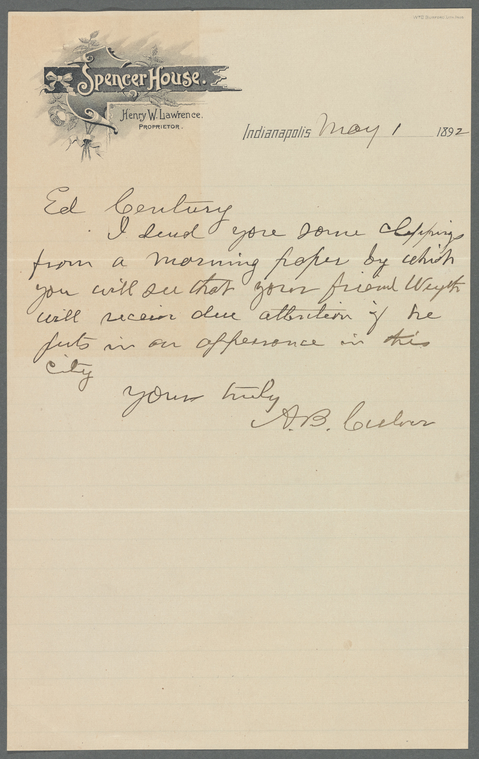 Spencer House.
Henry W. Lawrence.
Proprietor.
Indianapolis May 1 1892
Ed Century
I send you some clippings
from a morning paper by which
you will see that your friend Weyth
will receive due attention if he
puts in an appearance in this
city
Yours truly
A. B.